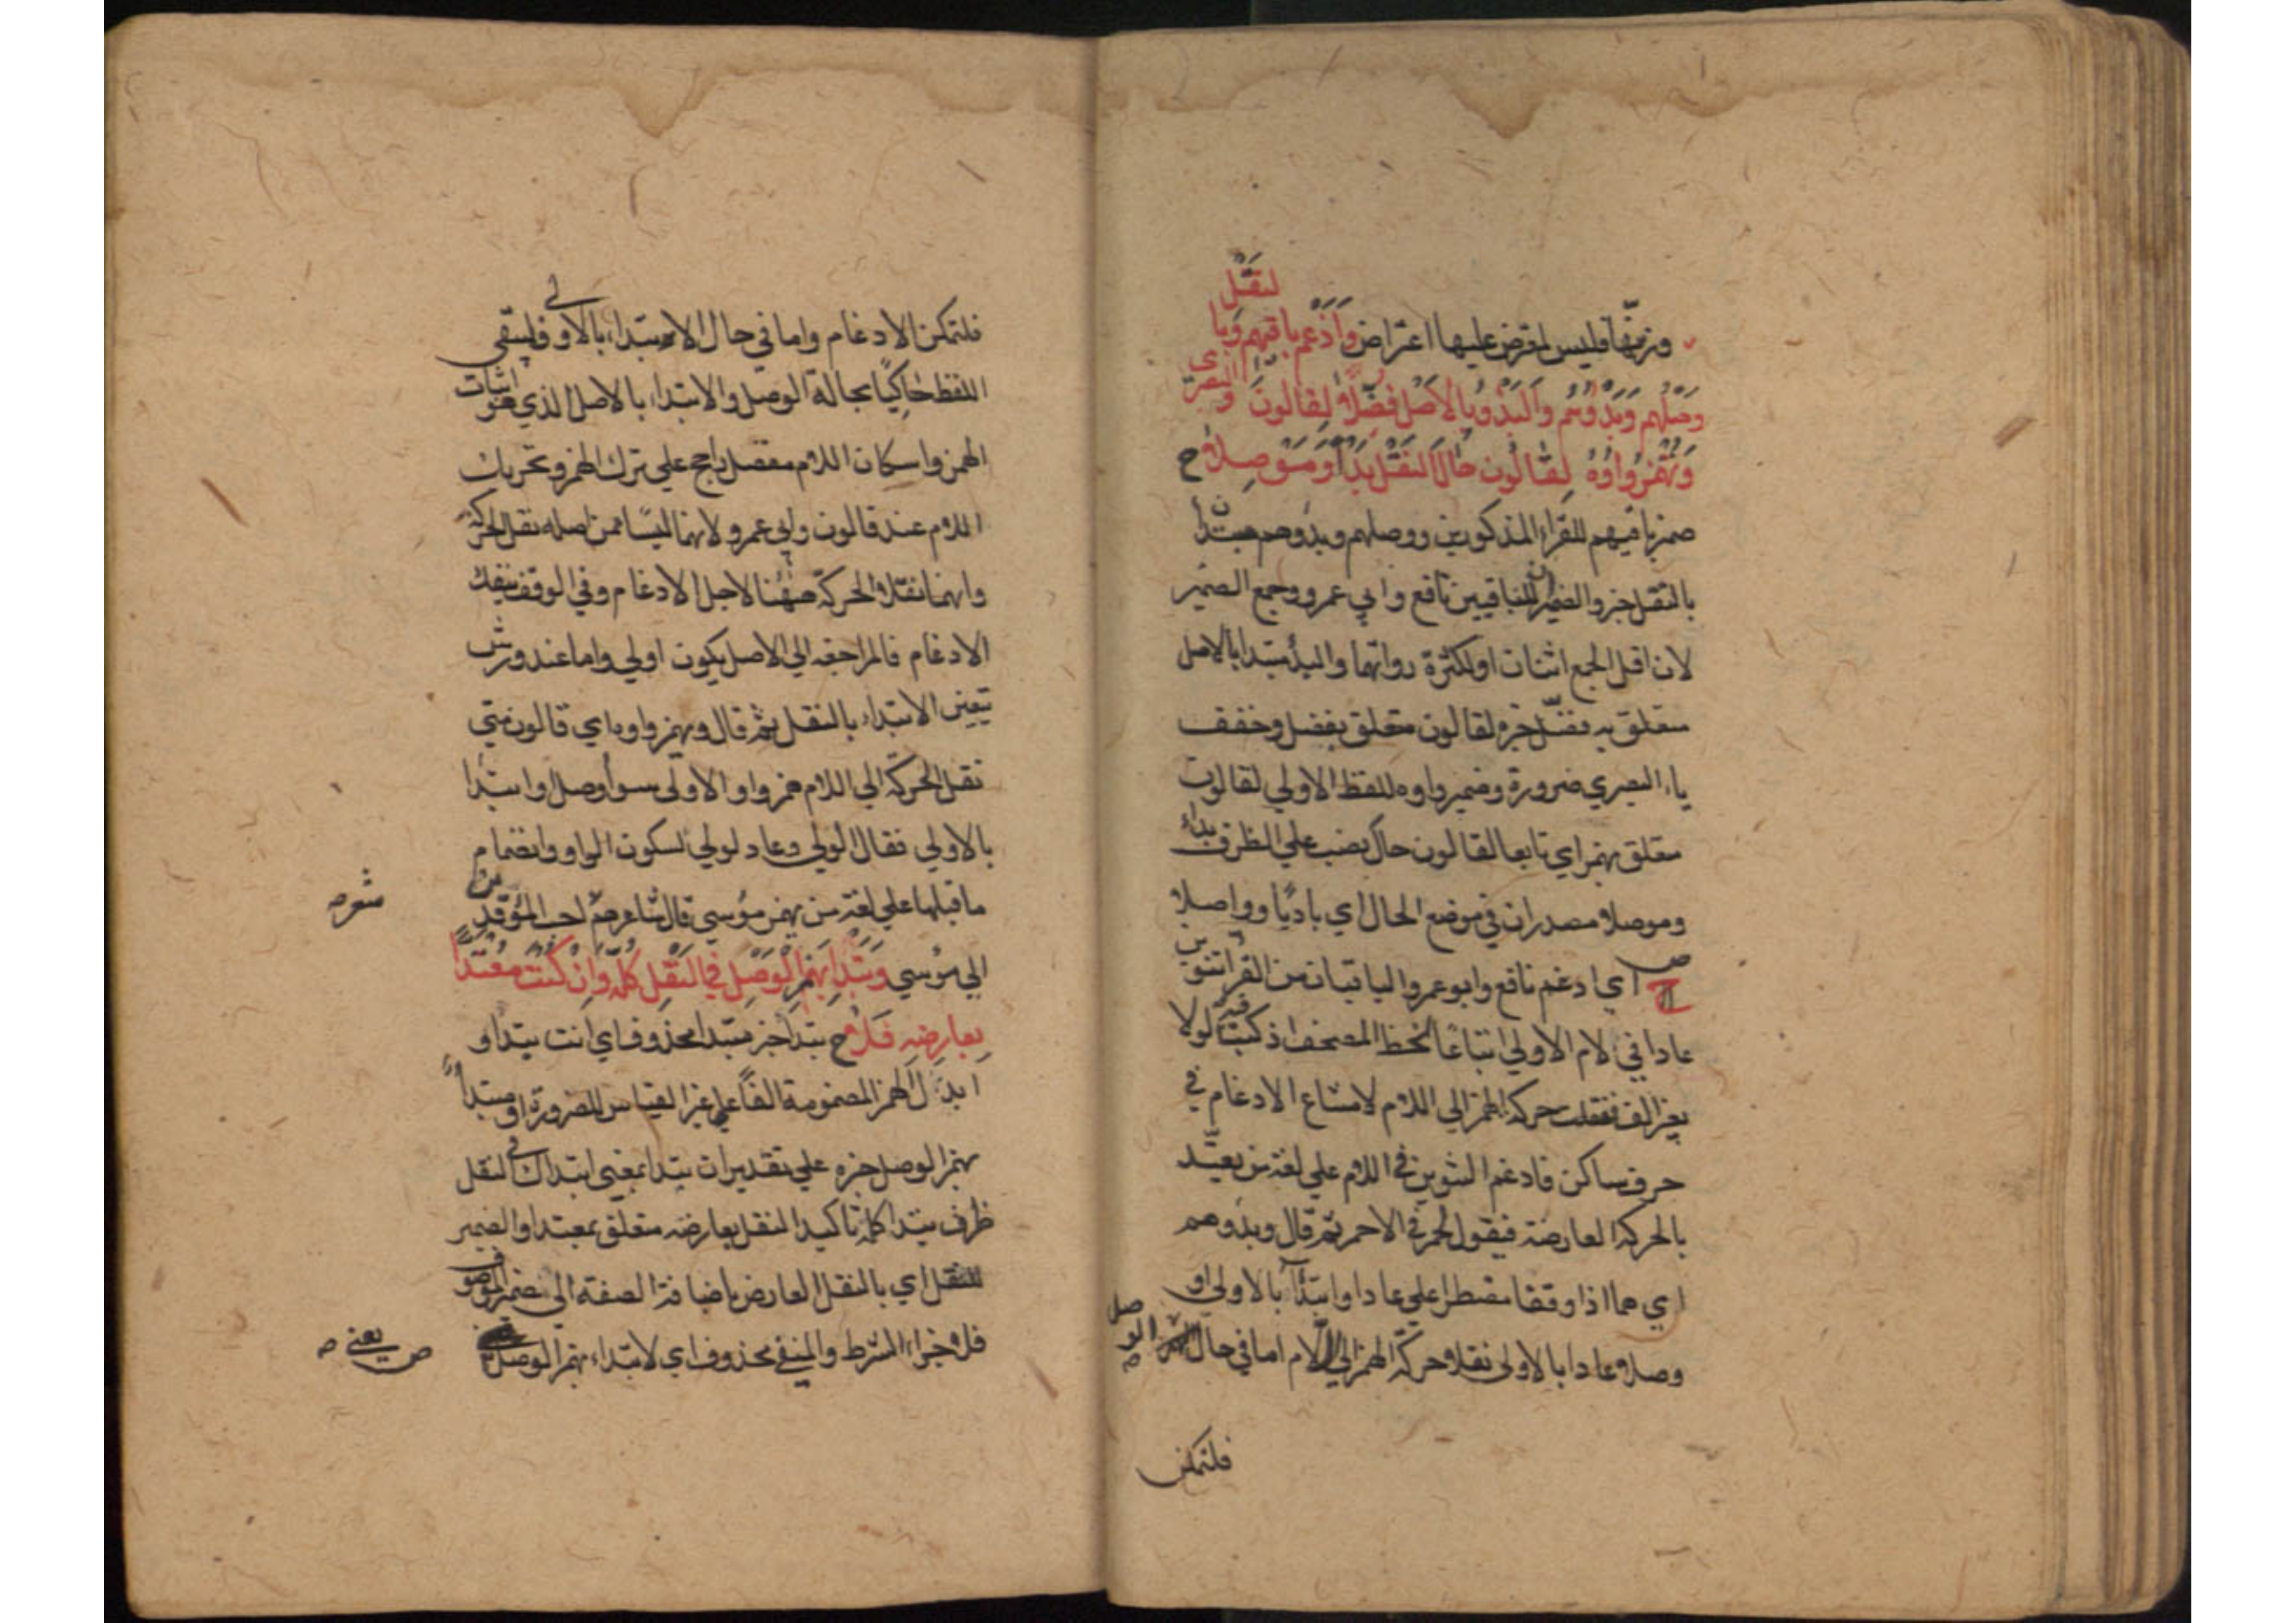 وزيفها وليس لمعترض عليها اعتراض وأدغم باقيهم وبالنقل
وصلهم وبدؤهم والبدؤ بالأصل فضلا لقالون والبصري
وتهمز واوه لقالون حال النقل بدأ وموصلا ح
ضمير باقيهم للقراء المذكورين ووصلهم وبدؤهم مبتدأ
بالنقل خبر والضميران للباقيين نافع وابي عمرو وجمع الضمير
لان اقل الجمع اثنان او لكثرة رواتهما والبدأ مبتدا بالاصل
متعلق به فضل خبره لقالون متعلق بفضل وخفف
ياء البصري ضرورة وضمير واوه للفظ الاولي لقالون
متعلق بهمز اي تابعا لقالون حال نصب علي الظرف بداء
وموصلا مصدران في موضع الحال اي باديا وواصلا
ص اي ادغم نافع وابو عمرو الباقيان من القراء تنوين
عادا في لام الاولي اتباعا لخط المصحف اذ كتبت فيه لولا
بغير الف فنقلت حركة الهمز الي اللام لامتناع الادغام في
حرف ساكن فادغم التنوين في اللام علي لغة من يعتد
بالحركة العارضة فيقول لحمر في الاحمر ثم قال وبدؤهم
اي هما اذا وقفا مضطرا علي عادا وابتدآ بالاولي او
وصلا عادا بالاولى نقلا حركة الهمز الي اللام اما في حال الوصل
فلتمكن
فلتمكن الادغام واما في حال الابتداء بالاولي فليبقي
اللفظ حاكيا بحالة الوصل والابتداء بالاصل الذي هو اثبات
الهمز واسكان اللام مفضل راجح علي ترك الهمز وتحريك
اللام عند قالون وابي عمرو لانهما ليسا ممن اصله نقل الحركة
وانهما نقلا الحركة ههنا لاجل الادغام وفي الوقف ينفك
الادغام فالمراجعة الي الاصل يكون اولي واما عند ورش
يتعين الابتداء بالنقل ثم قال وبهمز واوه اي قالون متي
نقل الحركة الي اللام همز واو الاولى سواء وصل او ابتدا
بالاولي فقال الؤلي وعاد لؤلي لسكون الواو وانضمام
ما قبلها علي لغة من يهمز مؤسي قال شاعرهم احب المؤقدين
شعر
الي مؤسي وتبدا بهمز الوصل في النقل كله وان كنت معتدا
بعارضه فلا ح تبدا خبر مبتدا محذوف اي انت تبدا و
ابدل الهمز المضمومة الفا علي غير القياس للضرورة او مبتدأ
بهمز الوصل خبره علي تقدير ان تبدا بمعني ابتداك في النقل
ظرف تبتدا كله تاكيد النقل بعارضه متعلق بمعتدا والضمير
للنقل اي بالنقل العارض باضافة الصفة الي ضمير الموصوف
فلا جزاء الشرط والمنفي محذوف اي لا تبتداء بهمز الوصل
ص يعني